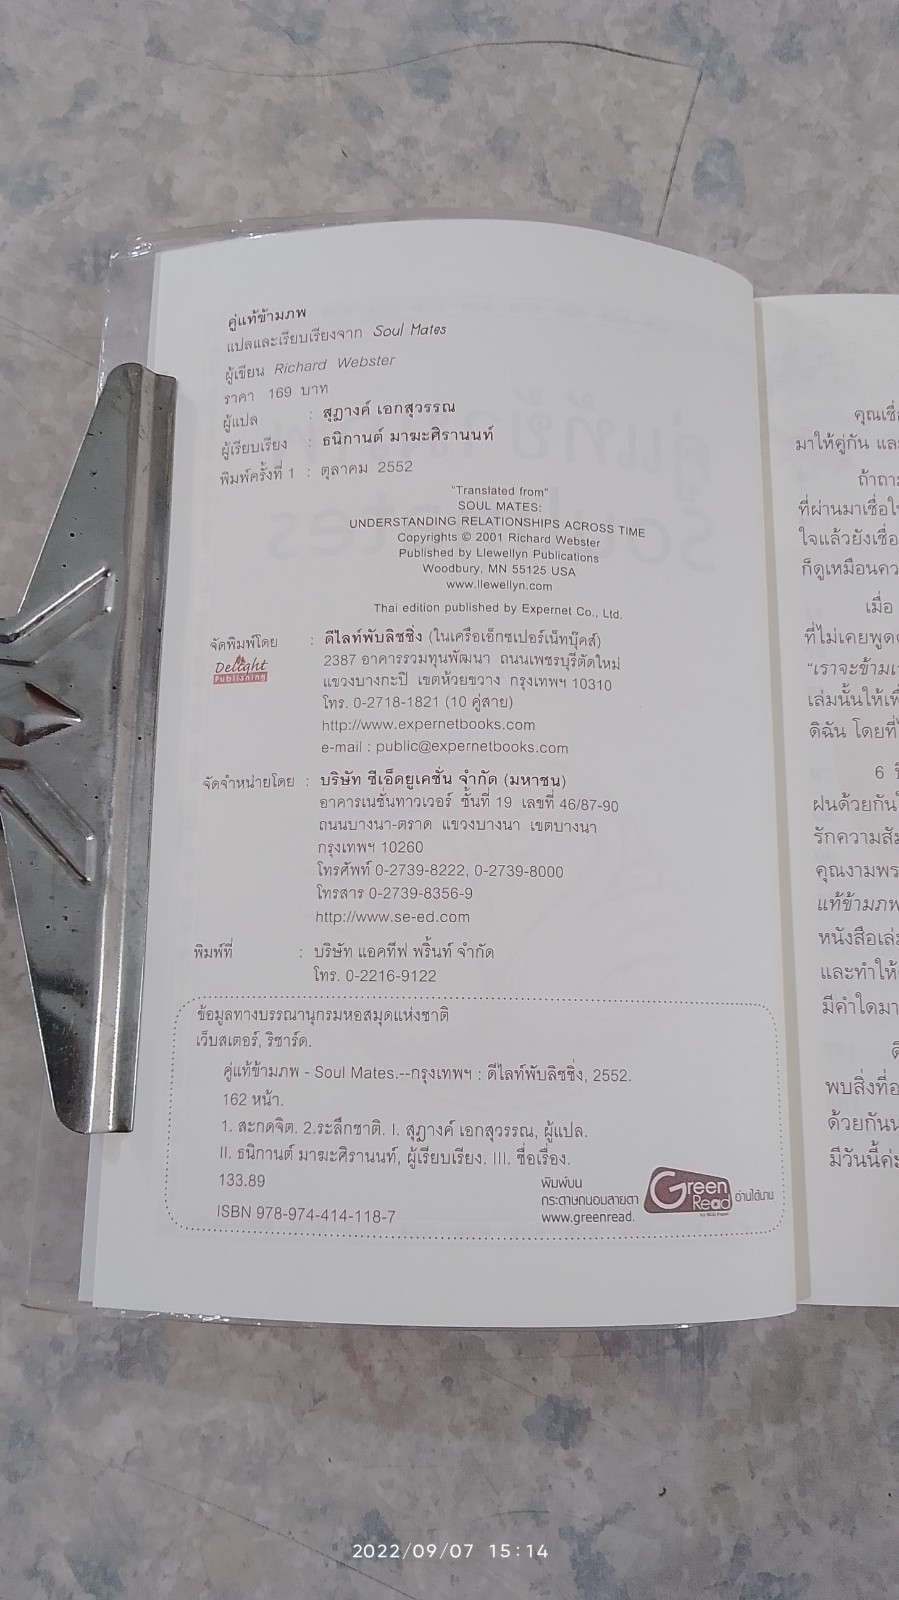 คู่แท้ข้ามภพ
แปลและเรียบเรียงจาก Soul Mates
ผู้เขียน Richard Webster
ราคา 169 บาท
ผู้แปล : สุฎางค์ เอกสุวรรณ
ผู้เรียบเรียง : ธนิกานต์ มาฆะศิรานนท์
พิมพ์ครั้งที่ 1 : ตุลาคม 2552
"Translated from"
SOUL MATES:
UNDERSTANDING RELATIONSHIPS ACROSS TIME
Copyrights © 2001 Richard Webster
Published by Llewellyn Publications
Woodbury, MN 55125 USA
www.llewellyn.com
Thai edition published by Expernet Co., Ltd.
จัดพิมพ์โดย : ดีไลท์พับลิชชิ่ง (ในเครือเอ็กซเปอร์เน็ทบุ๊คส์)
Delight
Publishing
2387 อาคารรวมทุนพัฒนา ถนนเพชรบุรีตัดใหม่
แขวงบางกะปิ เขตห้วยขวาง กรุงเทพฯ 10310
โทร. 0-2718-1821 (10 คู่สาย)
http://www.expernetbooks.com
e-mail : public@expernetbooks.com
จัดจำหน่ายโดย : บริษัท ซีเอ็ดยูเคชั่น จำกัด (มหาชน)
อาคารเนชั่นทาวเวอร์ ชั้นที่ 19 เลขที่ 46/87-90
ถนนบางนา-ตราด แขวงบางนา เขตบางนา
กรุงเทพฯ 10260
โทรศัพท์ 0-2739-8222, 0-2739-8000
โทรสาร 0-2739-8356-9
http://www.se-ed.com
พิมพ์ที่ : บริษัท แอคทีฟ พริ้นท์ จำกัด
โทร. 0-2216-9122
ข้อมูลทางบรรณานุกรมหอสมุดแห่งชาติ
เว็บสเตอร์, ริชาร์ด.
คู่แท้ข้ามภพ - Soul Mates.--กรุงเทพฯ : ดีไลท์พับลิชชิ่ง, 2552.
162 หน้า.
1. สะกดจิต. 2.ระลึกชาติ. I. สุฎางค์ เอกสุวรรณ, ผู้แปล.
II. ธนิกานต์ มาฆะศิรานนท์, ผู้เรียบเรียง. III. ชื่อเรื่อง.
133.89
ISBN 978-974-414-118-7
พิมพ์บน
กระดาษถนอมสายตา
www.greenread.
Green
Read
อ่านได้นาน
คุณเชื่
มาให้คู่กัน
ถ้าถาม
ที่ผ่านมาเชื่อ
ใจแล้วยังเชื่อ
ก็ดูเหมือน
เมื่อ
ที่ไม่เคยพูด
"เราจะข้าม
เล่มนั้นให้
ดิฉัน โดยที่
6
ฝนด้วยกัน
รักความ
คุณงาม
แท้ข้ามภพ
หนังสือ
และทำให้
มีคำใดมา
พบสิ่งที่
ด้วยกัน
มีวันนี้ค่ะ
2022/09/07 15:14